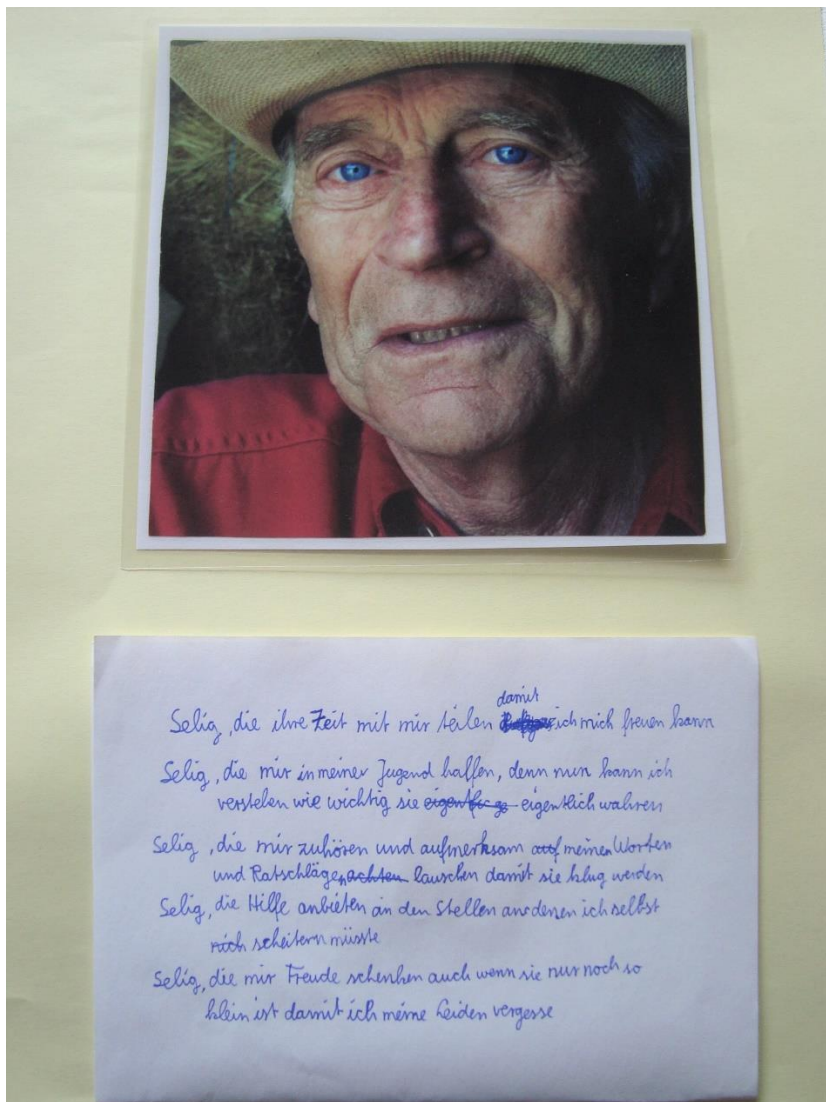 Selig, die ihre Zeit mit mir teilen damit ich mich freuen kann
Selig, die mir in meiner Jugend halfen, denn nun kann ich
verstehen wie wichtig sie eigentlich wahren
Selig, die mir zuhören und aufmerksam meinen Worten
und Ratschlägen lauschen damit sie klug werden
Selig, die Hilfe anbieten an den Stellen an denen ich selbst
scheitern müsste
Selig, die mir Freude schenken auch wenn sie nur noch so
klein ist damit ich meine Leiden vergesse